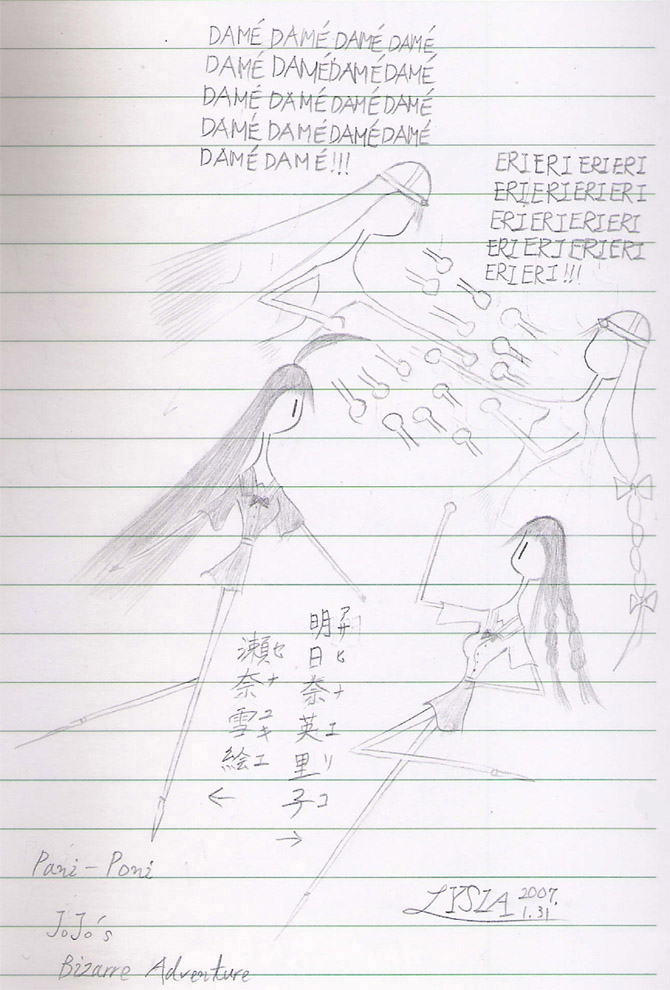 DAMÉ DAMÉ DAMÉ DAMÉ
DAMÉ DAMÉ DAMÉ DAMÉ
DAMÉ DAMÉ DAMÉ DAMÉ
DAMÉ DAMÉ DAMÉ DAMÉ
DAMÉ DAMÉ!!!
ERIERI ERIERI
ERIERIERIERI
ERIERIERIERI
ERIERIERIERI
ERIERI!!!
明日奈英里子
アサヒナエリコ
→
瀬奈雪絵
セナユキエ
←
Pani-Poni
JoJo's
Bizarre Adventure
LYSZA 2007.
1.31